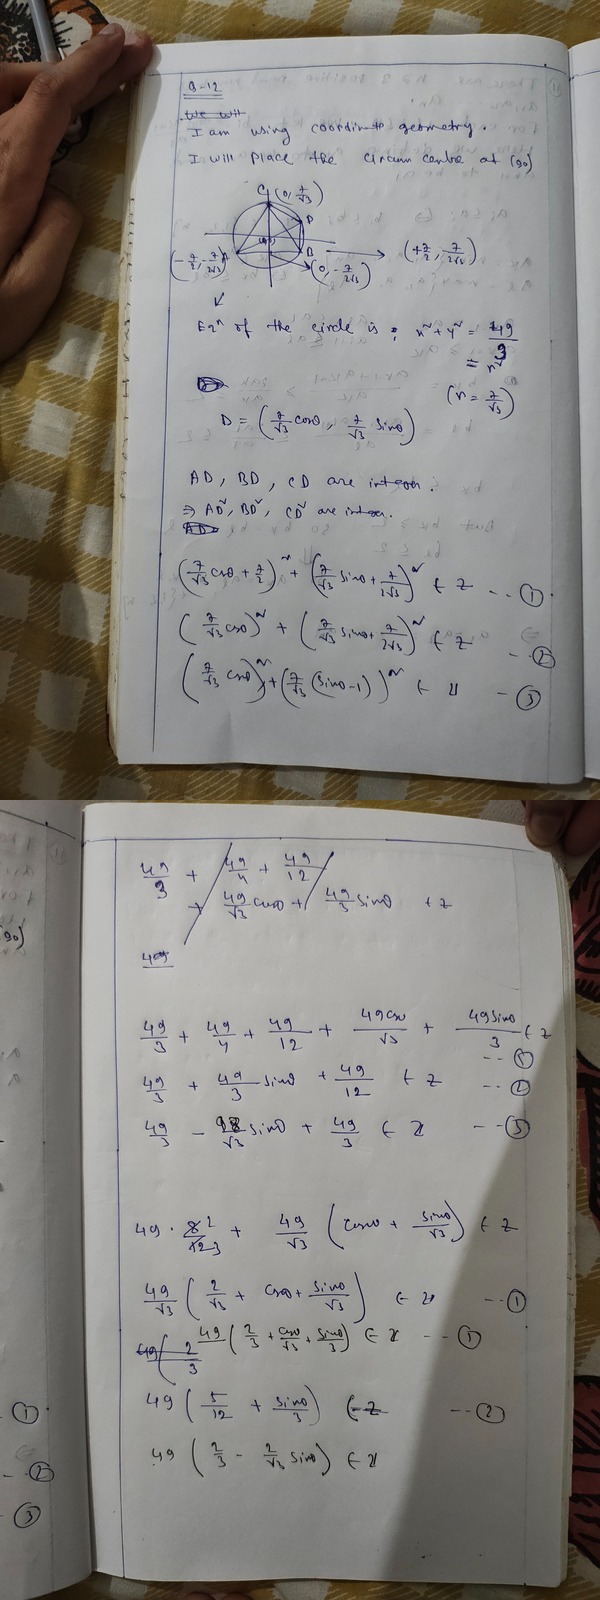 Q-12
We will
I am using coordinate geometry.
I will place the circum centre at (0,0)
C (0, 7/√3)
D
(-7/2, -7/2√3) A
B
(+7/2, -7/2√3)
(0, -7/2√3)
Eqⁿ of the circle is : x² + y² = 49/3
= r²
(r = 7/√3)
D = (7/√3 cosθ, 7/√3 sinθ)
AD, BD, CD are integer.
⇒ AD², BD², CD² are integer.
(7/√3 cosθ + 7/2)² + (7/√3 sinθ + 7/2√3)² ∈ Z -- ①
(7/√3 cosθ)² + (7/√3 sinθ + 7/2√3)² ∈ Z -- ②
(7/√3 cosθ)² + (7/√3 (sinθ-1))² ∈ Z - ③
49/3 + 49/4 + 49/12
+ 49/√3 cosθ + 49/3 sinθ ∈ Z
49
49/3 + 49/4 + 49/12 + 49cosθ/√3 + 49sinθ/3 ∈ Z -- ①
49/3 + 49/3 sinθ + 49/12 ∈ Z -- ②
49/3 - 98/√3 sinθ + 49/3 ∈ Z -- ③
49 · 8/12 2/3 + 49/√3 (cosθ + sinθ/√3) ∈ Z
49/√3 (2/√3 + cosθ + sinθ/√3) ∈ Z -- ①
49 (2/3 49 (2/3 + cosθ/√3 + sinθ/3) ∈ Z -- ①
49 (5/12 + sinθ/3) ∈ Z -- ②
49 (2/3 - 2/√3 sinθ) ∈ Z
① 
② 
③